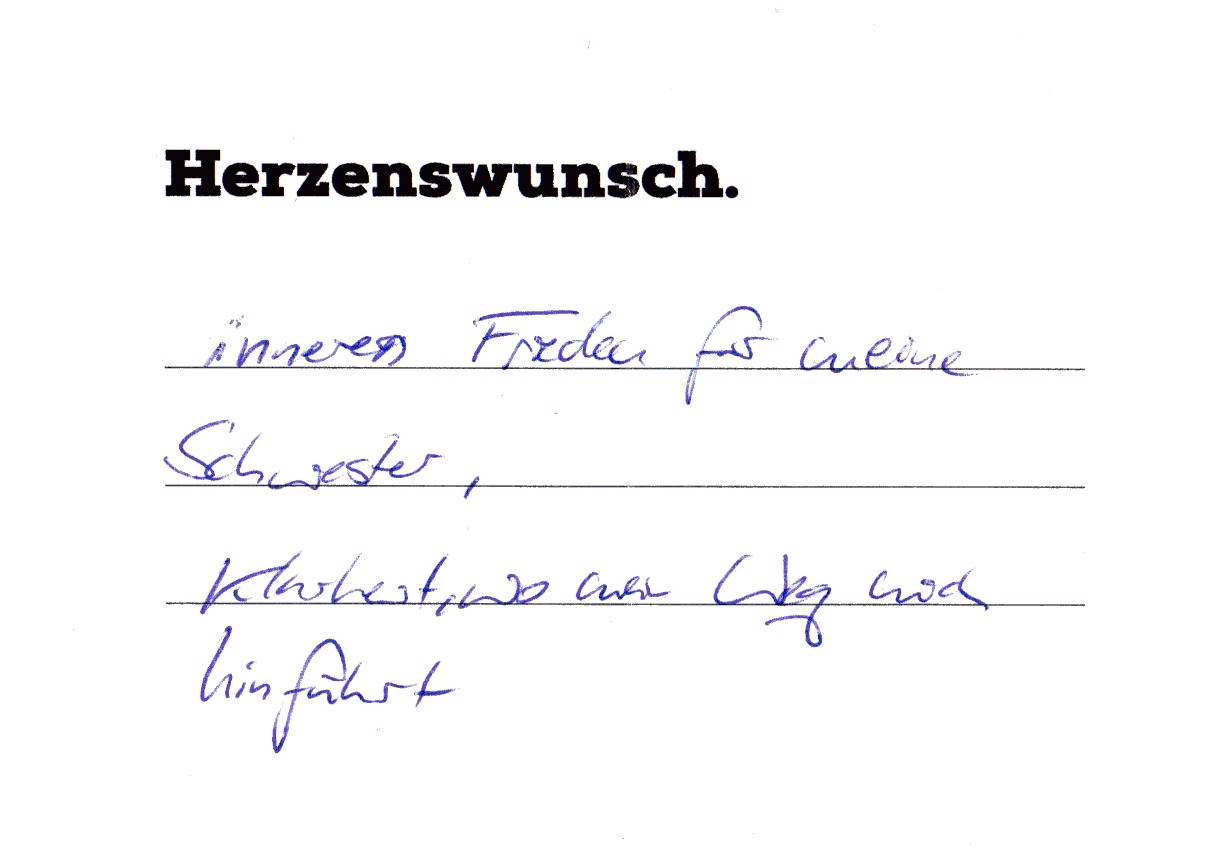 Herzenswunsch.
inneren Frieden für meine
Schwester,
Klarheit, wo mein Weg mich
hinführt